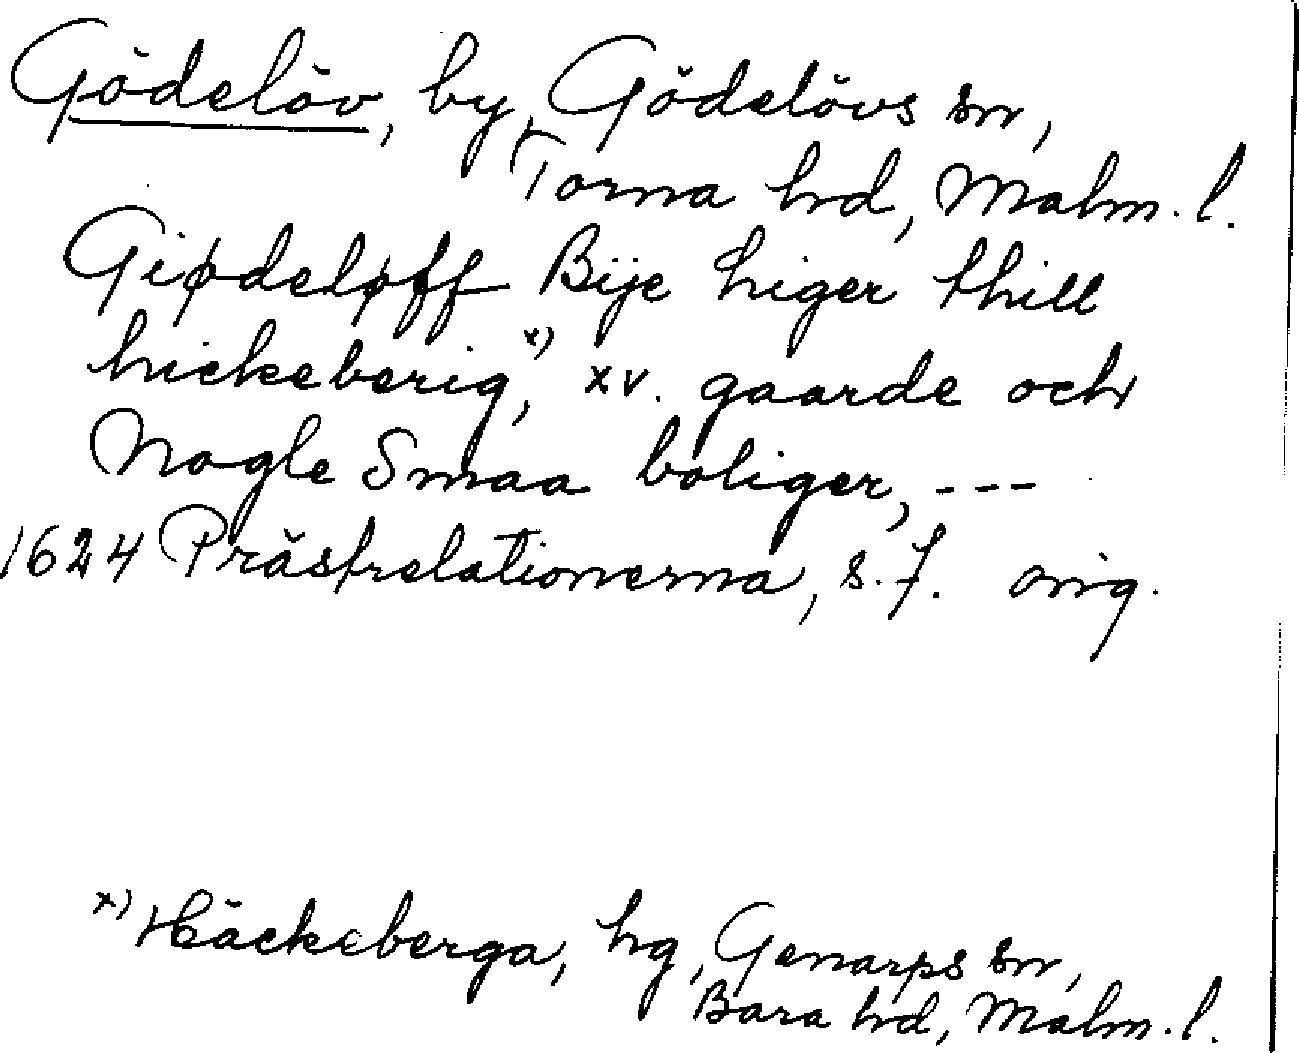 Gödelöv, by, Gödelövs sn,
Torna hrd, Malm. l.
Giødeløff Bije higer thill
hickeberig,x) xv. gaarde och
Nogle Smaa boliger, ---
1624 Prästrelationerna, s. 7. orig.
x) Häckeberga, hg, Genarps sn,
Bara hrd, Malm. l.